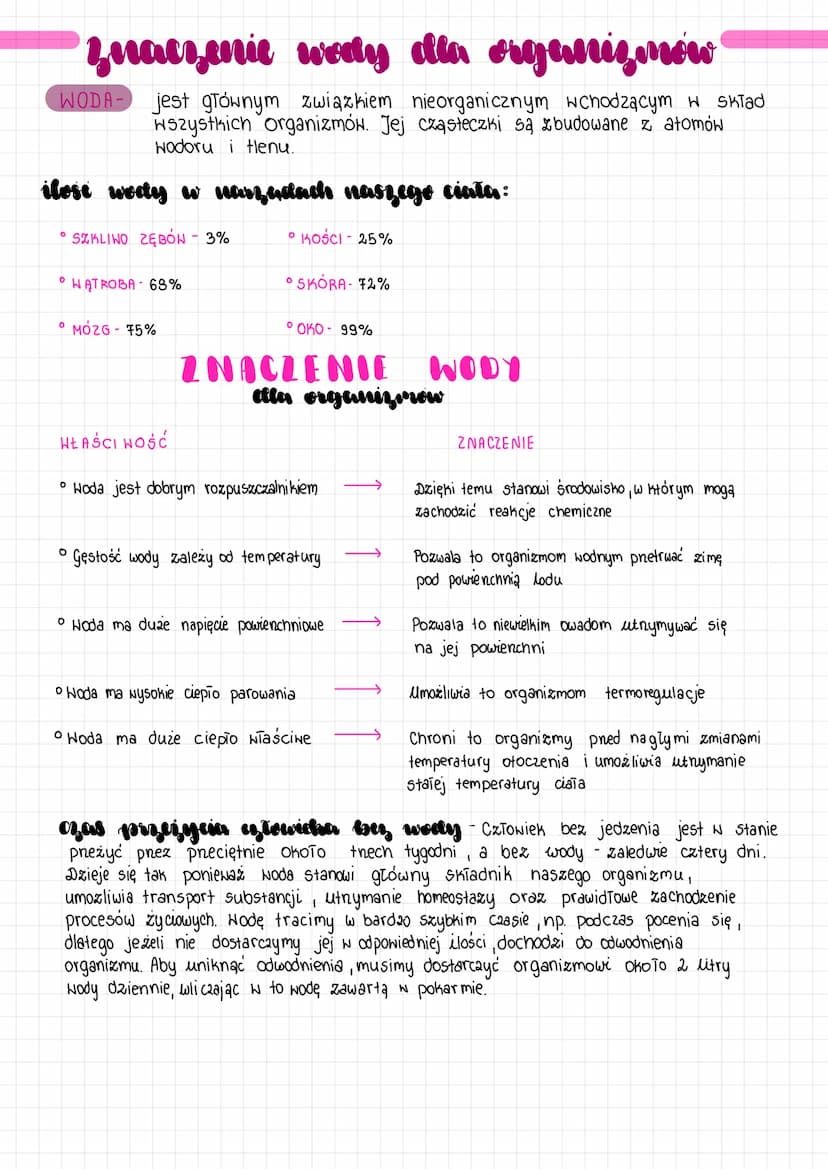 Znaczenie wody dla organizmów
WODA- jest głównym związkiem nieorganicznym wchodzącym w skład
wszystkich organizmów. Jej cząsteczki są zbudowane z atomów
wodoru i tlenu.
ilość wody w narządach naszego ciała:
° SZKLIWO ZĘBÓW - 3% ° KOŚCI - 25%
° WĄTROBA - 68% ° SKÓRA - 72%
° MÓZG - 75% ° OKO - 99%
ZNACZENIE WODY
dla organizmów
WŁAŚCIWOŚĆ ZNACZENIE
° Woda jest dobrym rozpuszczalnikiem → Dzięki temu stanowi środowisko, w którym mogą
zachodzić reakcje chemiczne
° Gęstość wody zależy od temperatury → Pozwala to organizmom wodnym przetrwać zimę
pod powierzchnią lodu
° Woda ma duże napięcie powierzchniowe → Pozwala to niewielkim owadom utrzymywać się
na jej powierzchni
° Woda ma wysokie ciepło parowania → Umożliwia to organizmom termoregulacje
° Woda ma duże ciepło właściwe → Chroni to organizmy przed nagłymi zmianami
temperatury otoczenia i umożliwia utrzymanie
stałej temperatury ciała
Czas przeżycia człowieka bez wody - Człowiek bez jedzenia jest w stanie
przeżyć przez przeciętnie około trzech tygodni, a bez wody - zaledwie cztery dni.
Dzieje się tak ponieważ woda stanowi główny składnik naszego organizmu,
umożliwia transport substancji, utrzymanie homeostazy oraz prawidłowe zachodzenie
procesów życiowych. Wodę tracimy w bardzo szybkim czasie, np. podczas pocenia się,
dlatego jeżeli nie dostarczymy jej w odpowiedniej ilości, dochodzi do odwodnienia
organizmu. Aby uniknąć odwodnienia, musimy dostarczyć organizmowi około 2 litry
wody dziennie, wliczając w to wodę zawartą w pokarmie.